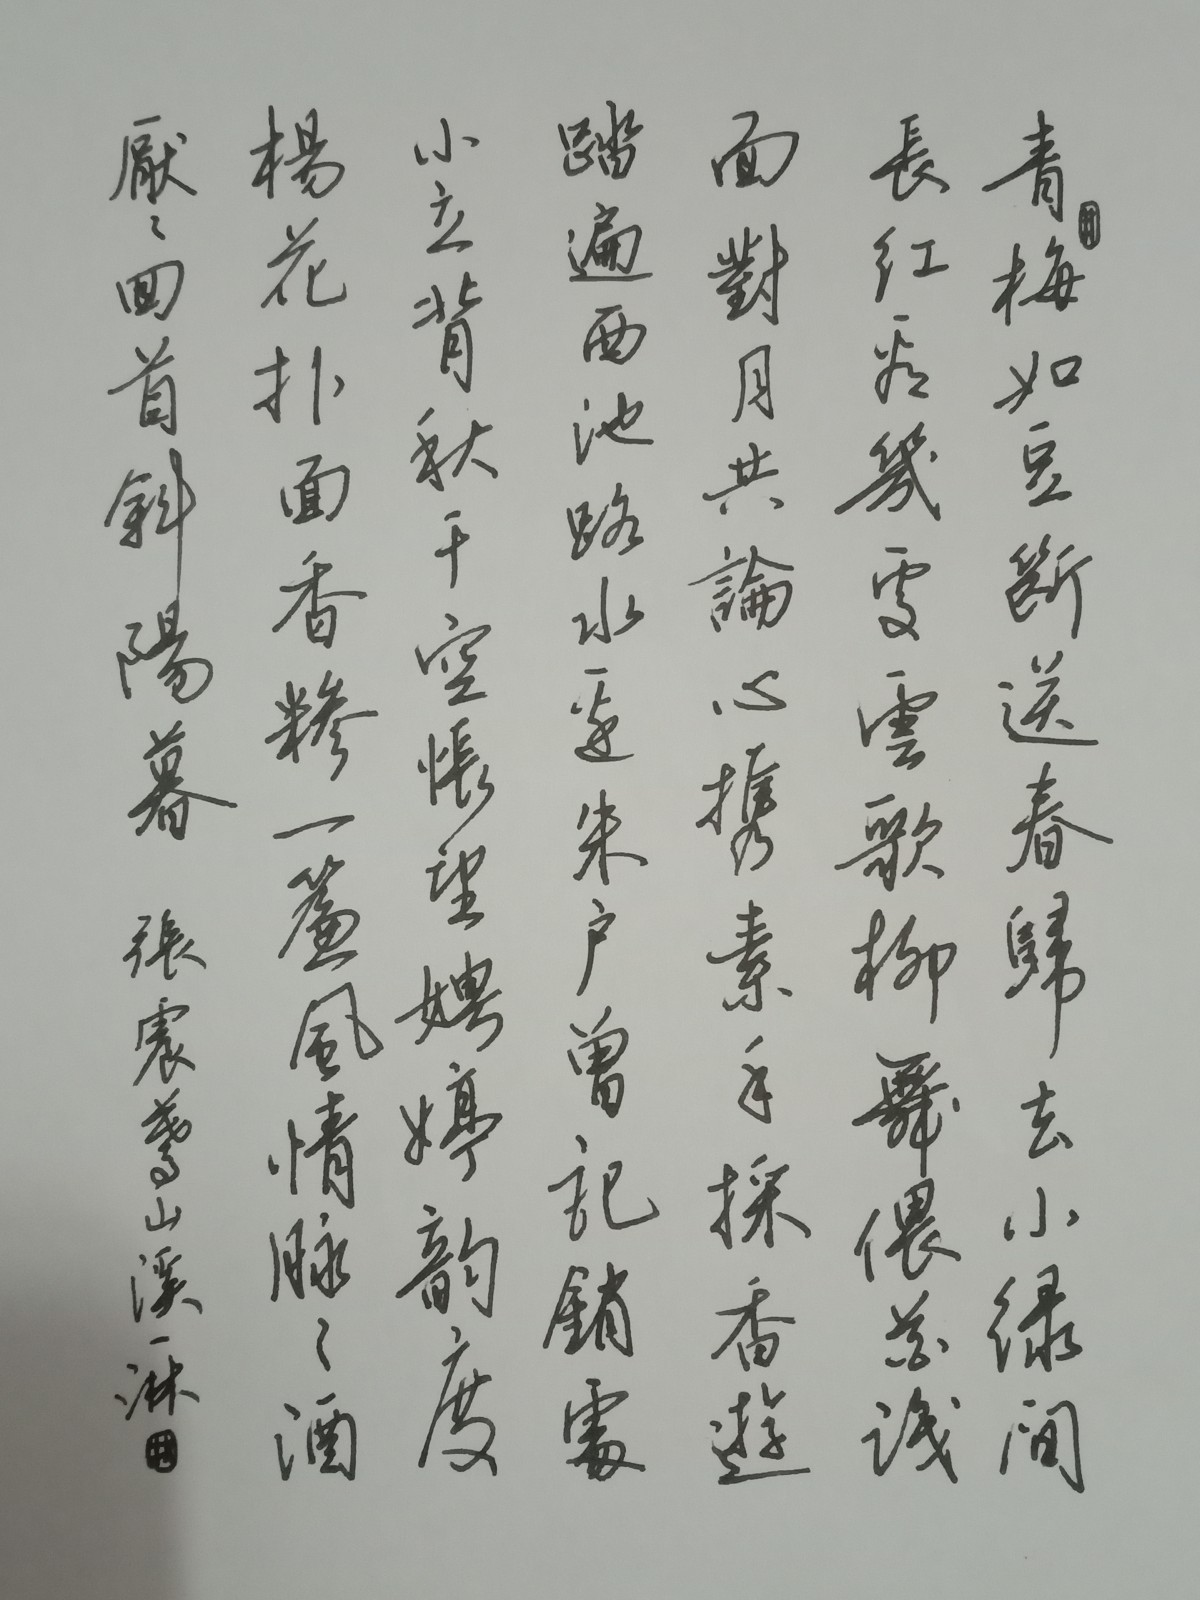 青梅如豆斷送春歸去小绿间
長红看幾處雲歌柳舞偎花識
面對月共論心携素手採香遊
踏遍西池路水邊朱户曾記銷處
小立背秋千空悵望娉婷韵度
楊花扑面香糝一簾風情脉々酒
厭々回首斜陽暮 張震驀山溪一